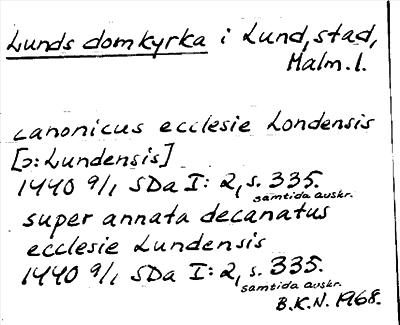 Lunds domkyrka i Lund, stad,
Malm. l.
canonicus ecclesie Londensis
[ɔ: Lundensis]
1440 9/1 SDa I: 2, s. 335.
samtida avskr.
super annata decanatus
ecclesie Lundensis
1440 9/1 SDa I: 2, s. 335.
samtida avskr.
B.K.N. 1968.